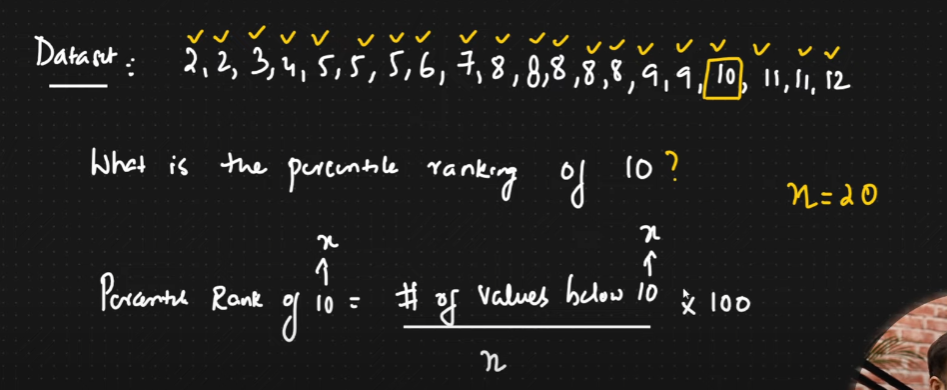 Dataset : 2, 2, 3, 4, 5, 5, 5, 6, 7, 8, 8, 8, 8, 8, 9, 9, 10, 11, 11, 12
What is the percentile ranking of 10 ?
n = 20
x x
Percentile Rank of 10 = # of values below 10 × 100
n